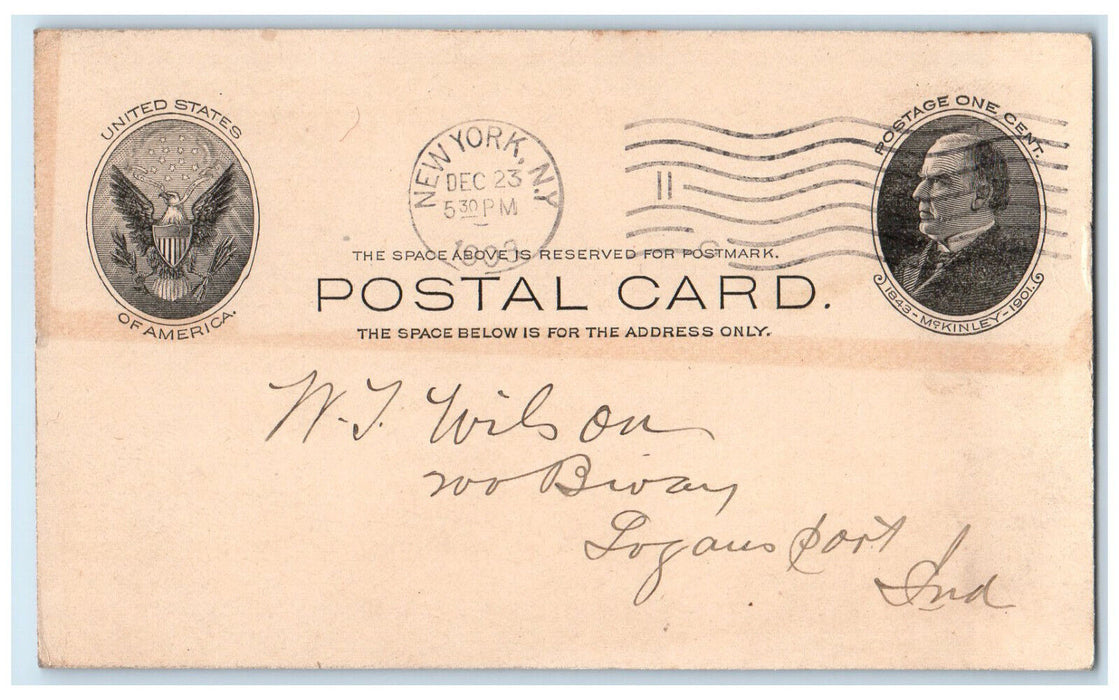 UNITED STATES
OF AMERICA.
NEW YORK, N.Y
DEC 23
5 30 PM
11
POSTAGE ONE CENT.
1843-McKINLEY-1901.
THE SPACE ABOVE IS RESERVED FOR POSTMARK.
POSTAL CARD.
THE SPACE BELOW IS FOR THE ADDRESS ONLY.
W. T. Wilson
200 Bway
Logansport
Ind